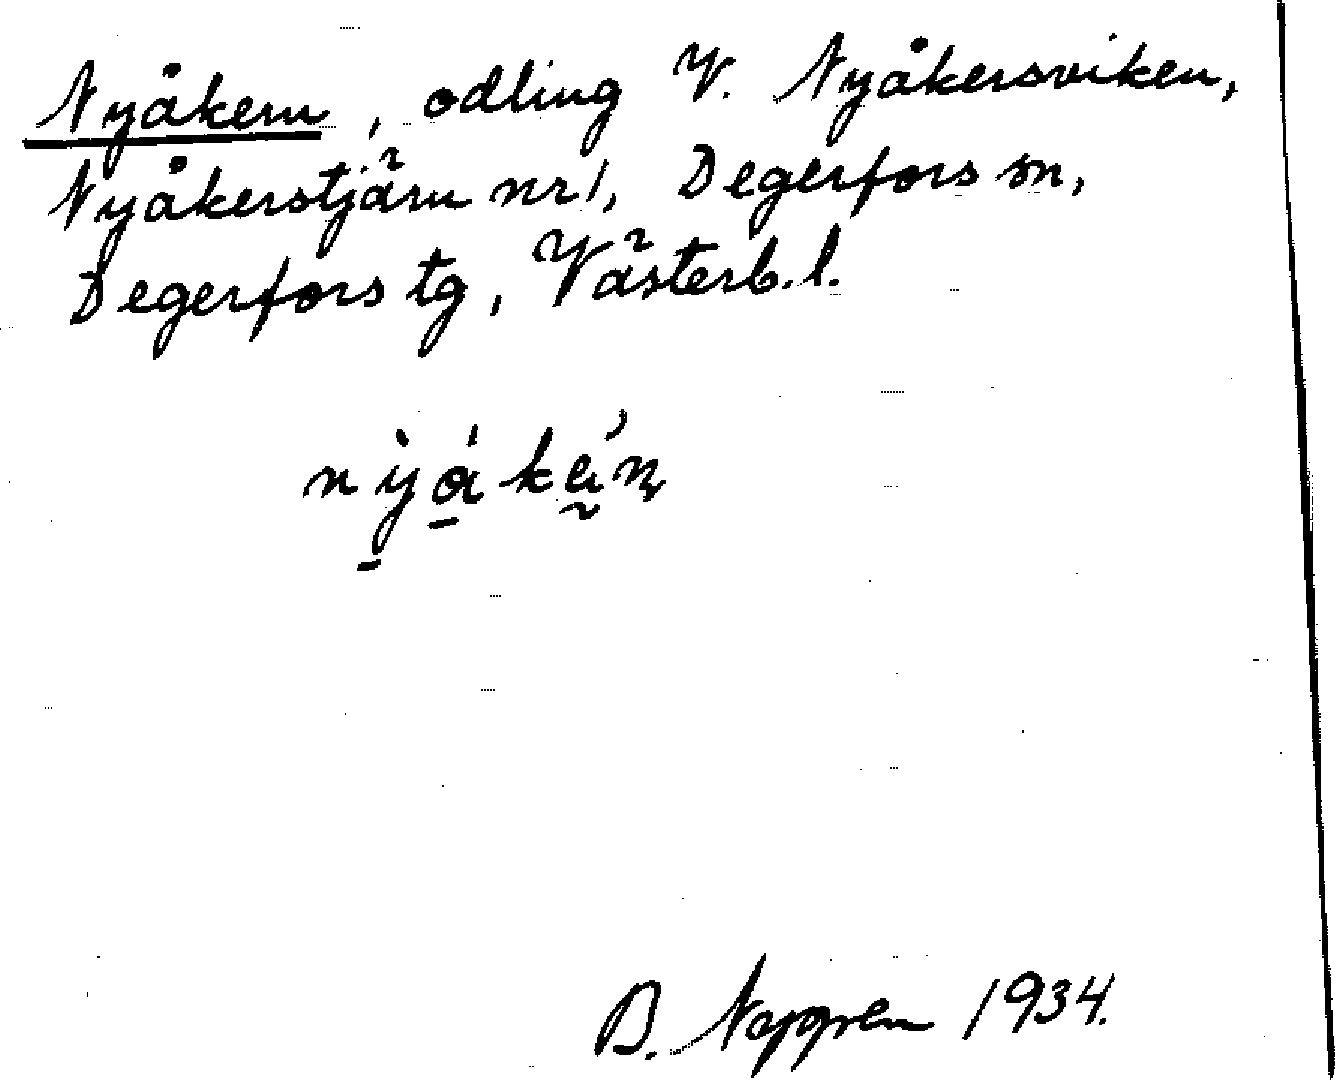 Nyåkern, odling V. Nyåkersviken,
Nyåkerstjärn nr 1, Degerfors sn,
Degerfors tg, Västerb. l.
B. 1934.